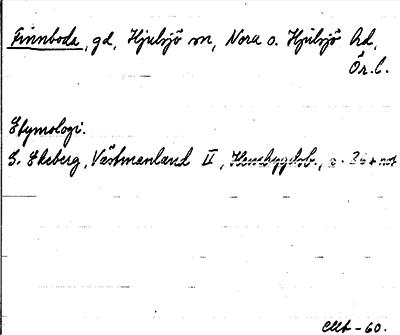 Finnboda, gd, Hjulsjö sn, Nora o. Hjulsjö hd,
Ör. l.
Etymologi.
G. Ekeberg, Västmanland II, Hembygdsb., s. 36 + not
-60.